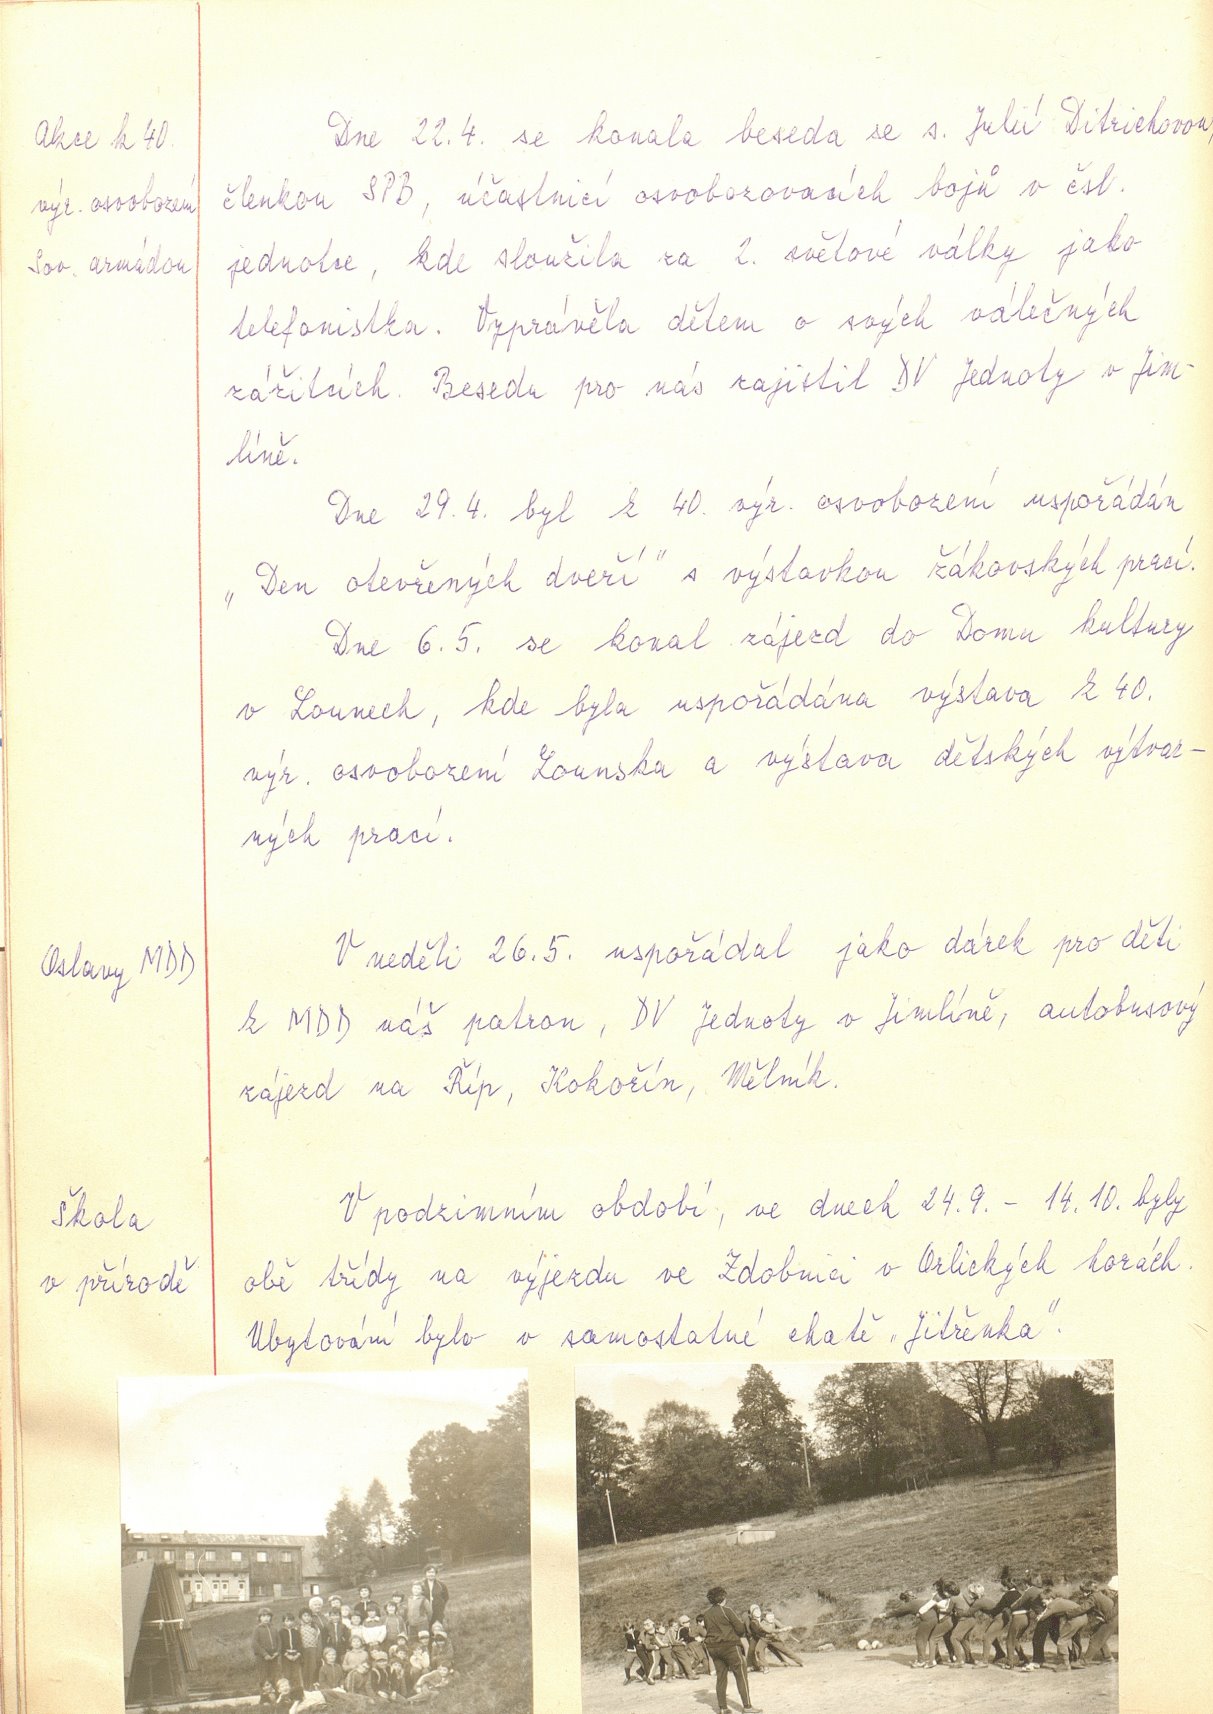 Akce k 40.
výr. osvobození
Sov. armádou
Dne 22.4. se konala beseda se s. Julií Ditrichovou,
členkou SPB, účastnicí osvobozovacích bojů v čsl.
jednotce, kde sloužila za 2. světové války jako
telefonistka. Vyprávěla dětem o svých válečných
zážitcích. Besedu pro nás zajistil DV Jednoty v Jim-
líně.
Dne 29.4. byl k 40. výr. osvobození uspořádán
„Den otevřených dveří" s výstavkou žákovských prací.
Dne 6.5. se konal zájezd do Domu kultury
v Lounech, kde byla uspořádána výstava k 40.
výr. osvobození Lounska a výstava dětských výtvar-
ných prací.
Oslavy MDD
V neděli 26.5. uspořádal jako dárek pro děti
k MDD náš patron, DV Jednoty v Jimlíně, autobusový
zájezd na Říp, Kokořín, Mělník.
Škola
v přírodě
V podzimním období, ve dnech 24.9. - 14.10. byly
obě třídy na výjezdu ve Zdobnici v Orlických horách.
Ubytování bylo v samostatné chatě „Jitřenka".